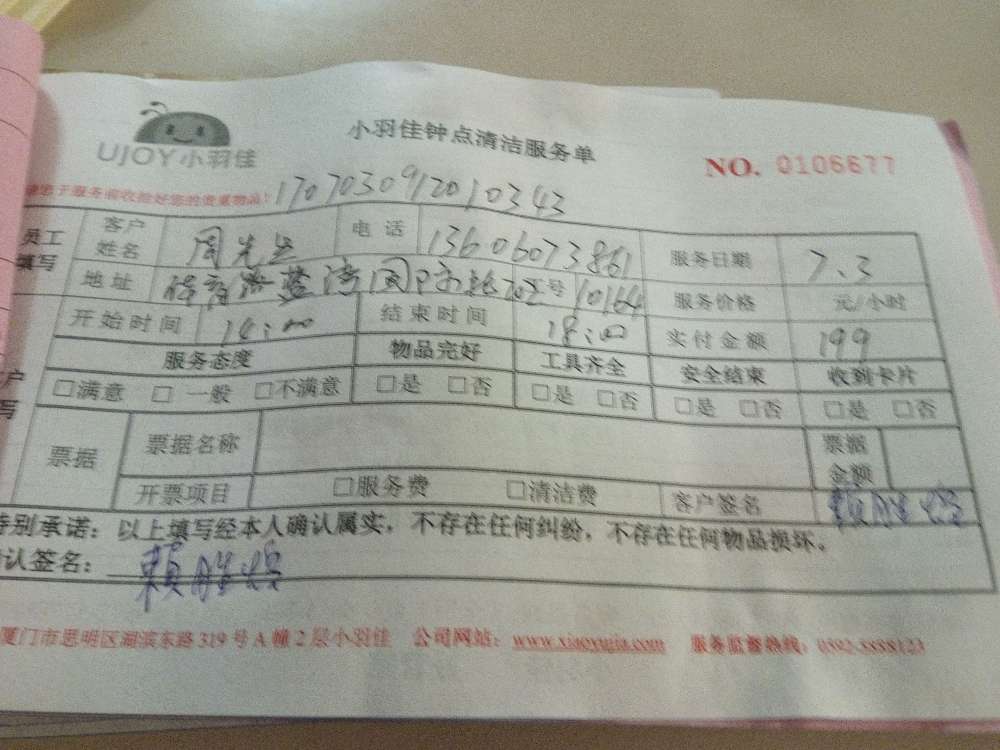 UJOY小羽佳
小羽佳钟点清洁服务单
NO. 0106677
于服务前收拾好您的贵重物品!
1707030912010343
员工填写 客户姓名 周先生 电话 13606073861 服务日期 7.3
地址 体育路 湾国际 号 10164 服务价格 元/小时
开始时间 14:00 结束时间 18:00 实付金额 199
服务态度 物品完好 工具齐全 安全结束 收到卡片
□满意 □一般 □不满意 □是 □否 □是 □否 □是 □否 □是 □否
票据 票据名称 票据金额
开票项目 □服务费 □清洁费 客户签名 賴胜
特别承诺：以上填写经本人确认属实，不存在任何纠纷，不存在任何物品损坏。
确认签名：賴胜
厦门市思明区湖滨东路319号A幢2层小羽佳 公司网站：www.xiaoyujia.com 服务监督热线：0592-5888123